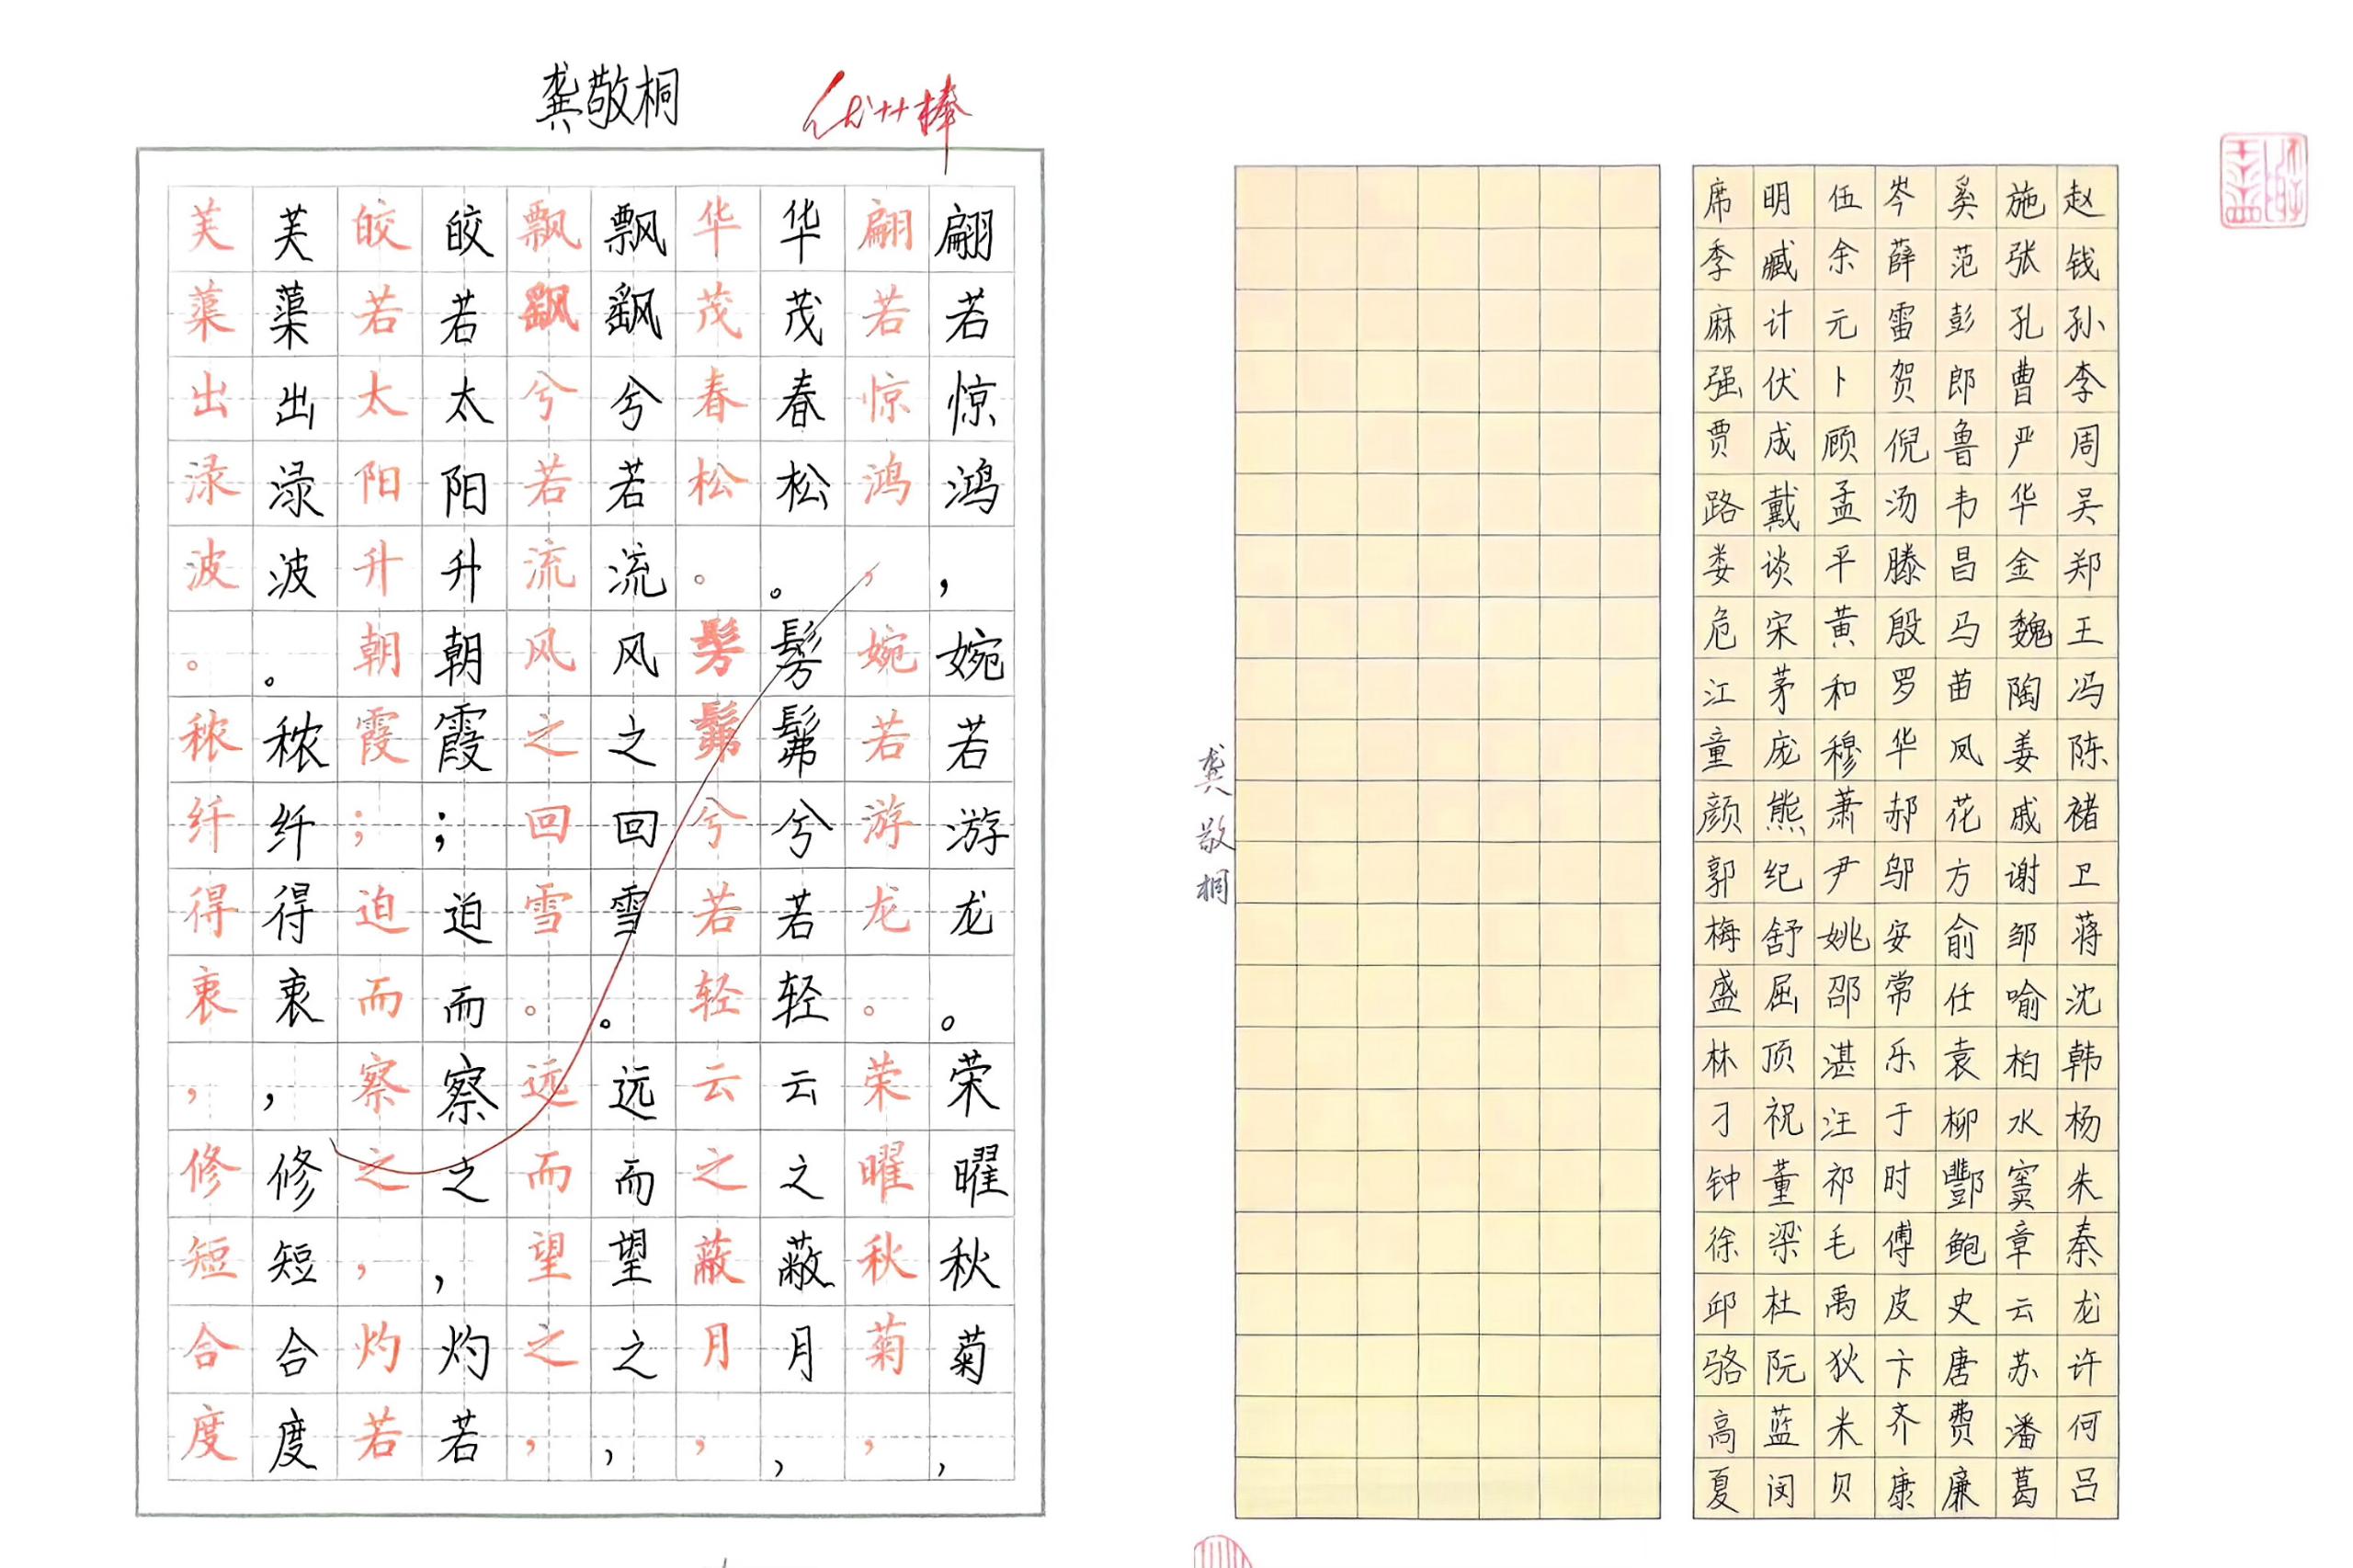 龚敬桐
优++棒
翩若惊鸿，婉若游龙。荣曜秋菊，
翩若惊鸿，婉若游龙。荣曜秋菊，
华茂春松。髣髴兮若轻云之蔽月，
华茂春松。髣髴兮若轻云之蔽月，
飘飖兮若流风之回雪。远而望之，
飘飖兮若流风之回雪。远而望之，
皎若太阳升朝霞；迫而察之，灼若
皎若太阳升朝霞；迫而察之，灼若
芙蕖出渌波。秾纤得衷，修短合度
芙蕖出渌波。秾纤得衷，修短合度
赵钱孙李周吴郑王冯陈褚卫蒋沈韩杨朱秦龙许何吕
施张孔曹严华金魏陶姜戚谢邹喻柏水窦章云苏潘葛
奚范彭郎鲁韦昌马苗凤花方俞任袁柳酆鲍史唐费廉
岑薛雷贺倪汤滕殷罗华郝邬安常乐于时傅皮卞齐康
伍余元卜顾孟平黄和穆萧尹姚邵湛汪祁毛禹狄米贝
明臧计伏成戴谈宋茅庞熊纪舒屈顶祝董梁杜阮蓝闵
席季麻强贾路娄危江童颜郭梅盛林刁钟徐邱骆高夏
龚敬桐